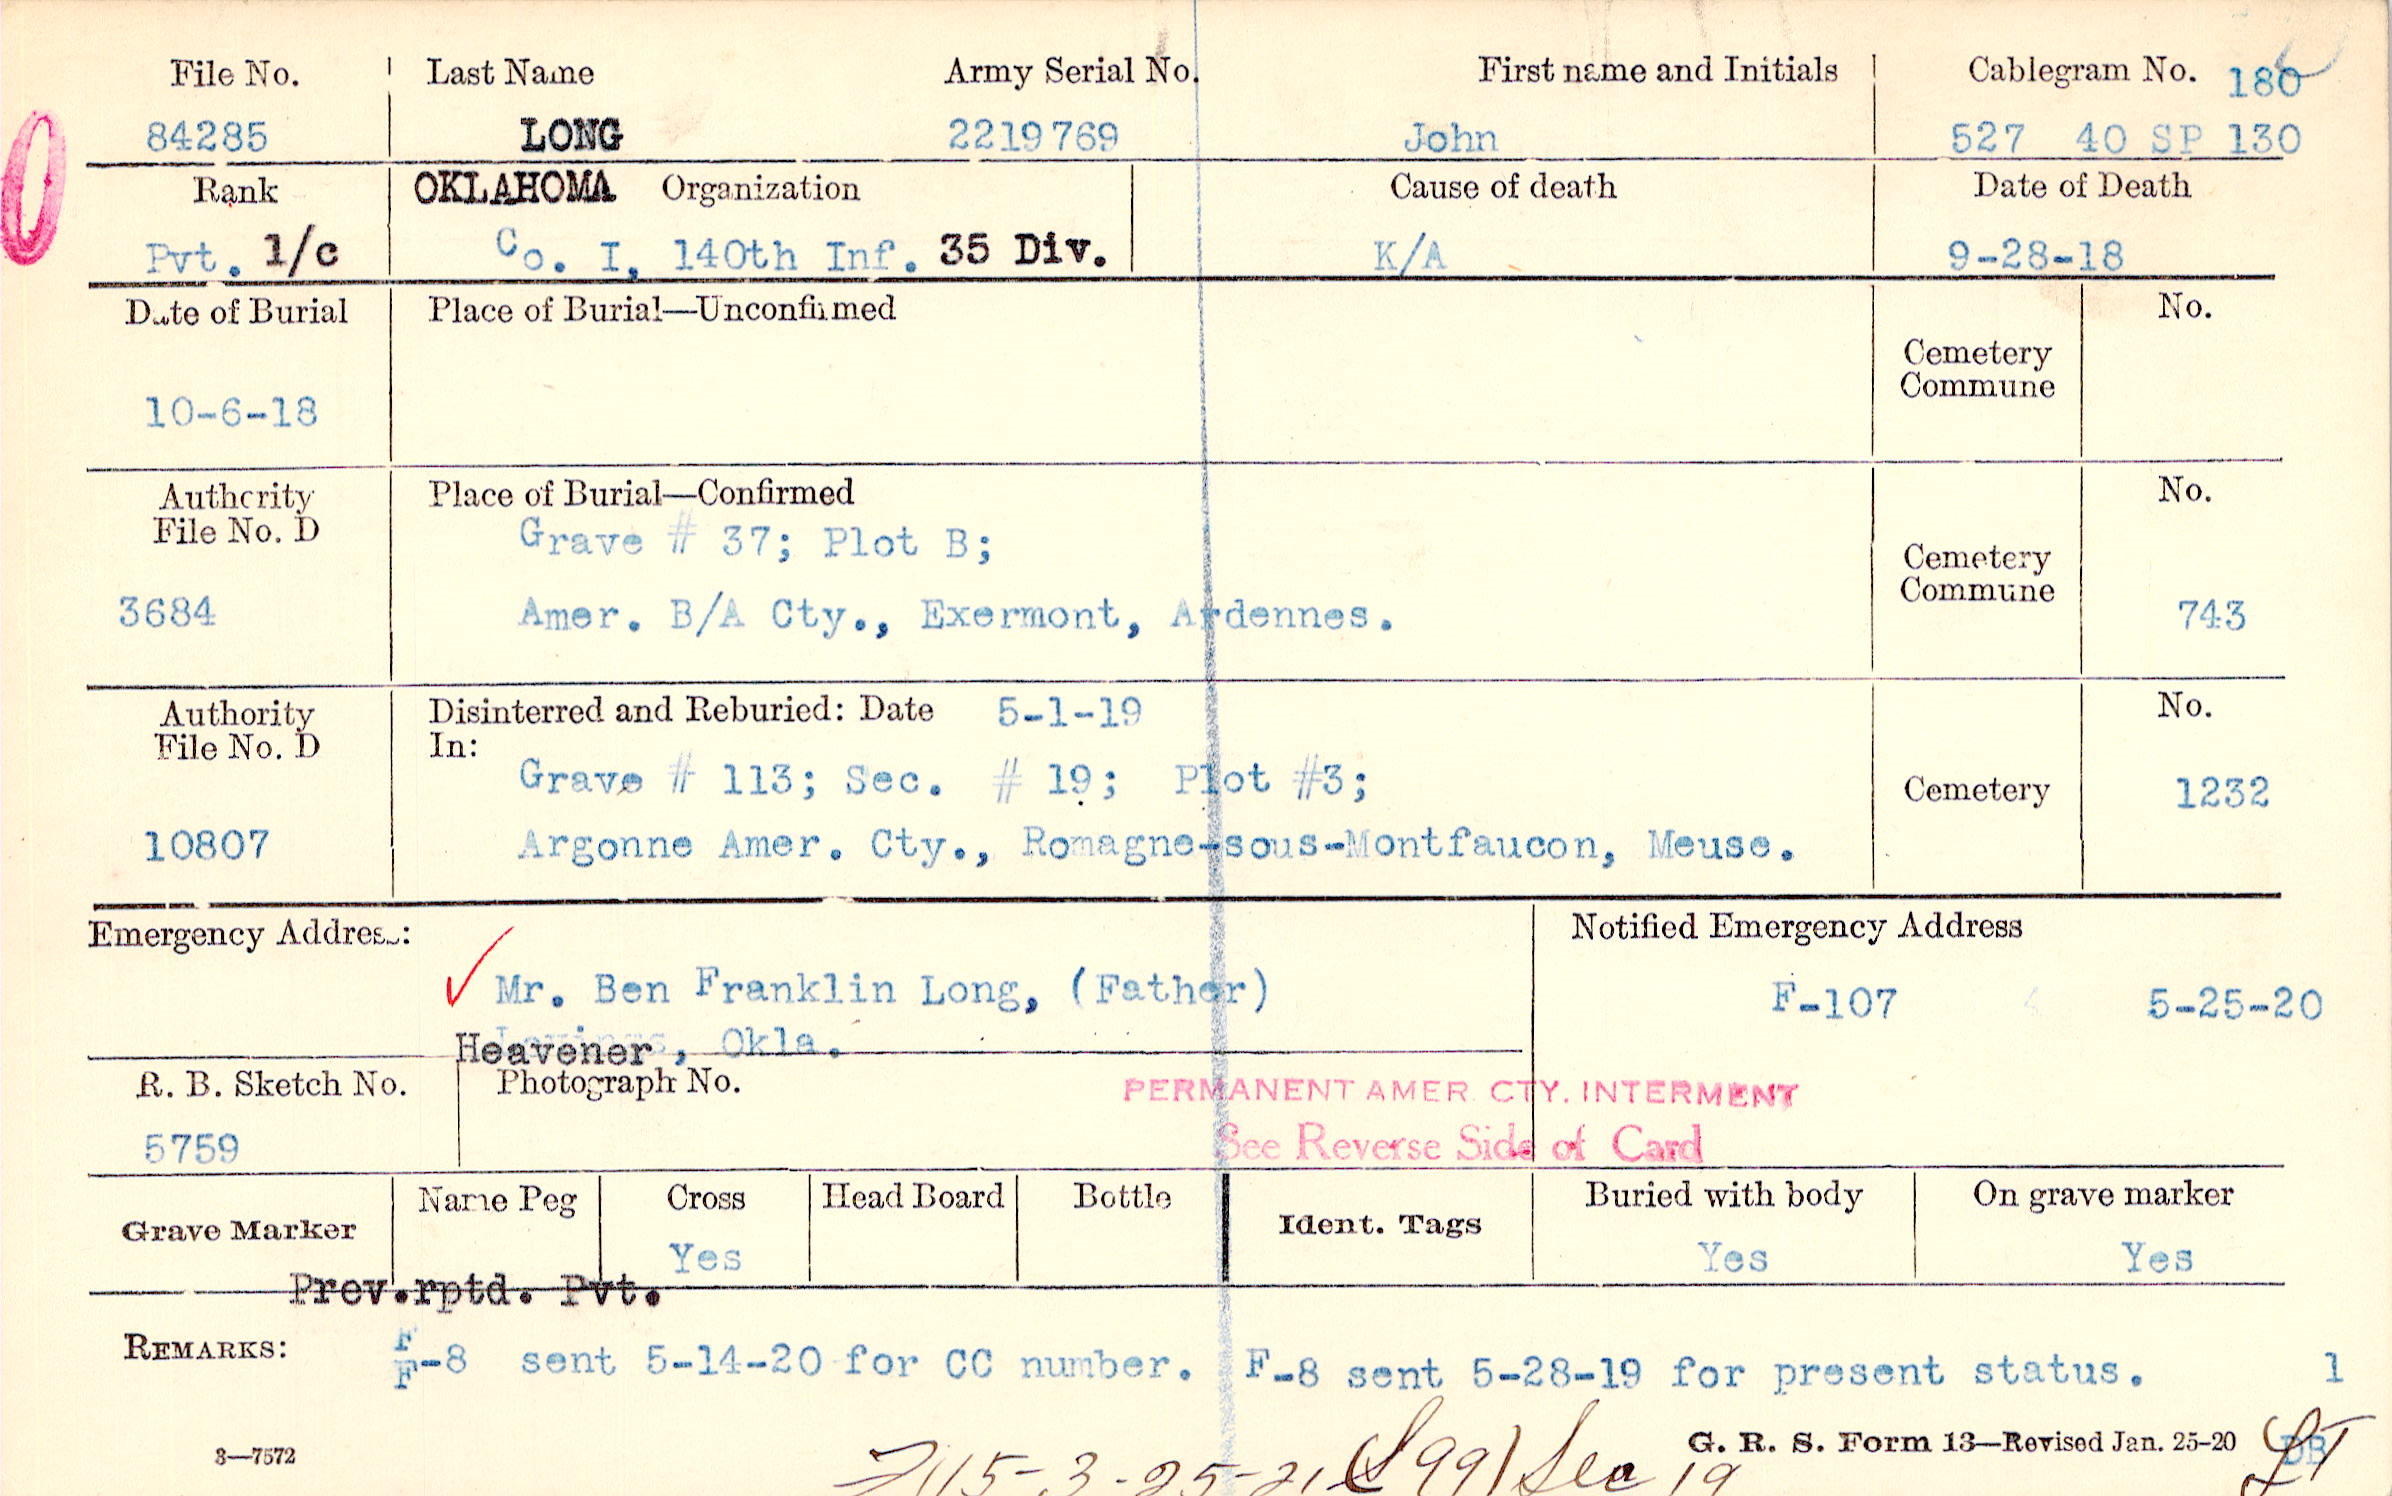 File No. Last Name Army Serial No. First name and Initials Cablegram No. 180
84285 LONG 2219769 John 527 40 SP 130
Rank OKLAHOMA Organization Cause of death Date of Death
Pvt. 1/c Co. I, 140th Inf. 35 Div. K/A 9-28-18
Date of Burial Place of Burial—Unconfirmed No.
Cemetery
Commune
10-6-18
Authority Place of Burial—Confirmed No.
File No. D Grave # 37; Plot B;
Cemetery
Commune
3684 Amer. B/A Cty., Exermont, Ardennes. 743
Authority Disinterred and Reburied: Date 5-1-19 No.
File No. D In:
Grave # 113; Sec. # 19; Plot #3; Cemetery 1232
10807 Argonne Amer. Cty., Romagne-sous-Montfaucon, Meuse.
Emergency Address: Notified Emergency Address
Mr. Ben Franklin Long, (Father) F-107 5-25-20
Heavener, Okla.
R. B. Sketch No. Photograph No. PERMANENT AMER CTY. INTERMENT
5759 See Reverse Side of Card
Grave Marker Name Peg Cross Head Board Bottle Ident. Tags Buried with body On grave marker
Yes Yes Yes
Prev.rptd. Pvt.
REMARKS: F-8 sent 5-14-20 for CC number. F-8 sent 5-28-19 for present status. 1
3—7572 G. R. S. Form 13—Revised Jan. 25-20